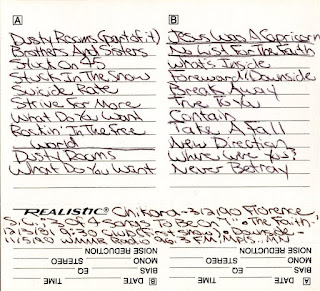 A
Dusty Rooms (part of it)
Brothers And Sisters
Stuck On 45
Stuck In The Snow
Suicide Rate
Strive For More
What Do You Want
Rockin' In The Free
World
Dusty Rooms
What Do You Want
B
Jesus Was A Capricorn
No Lust For The Faith
What's Inside
Foreward "Downside
Break Away
True To You
Contain
Take A Fall
New Direction
Where Were You?
Never Betray
REALISTIC® Chikara - 3/2/90 Florence,
3 of 4 Songs To Be On • The Faith -
12/31/81 9:30 Club (1st show) • Downside -
11/5/90 WMMR Radio 96.3 FM, MPLS., MN
A DATE TIME
NOISE REDUCTION
BIAS EQ
MONO STEREO
B DATE TIME
NOISE REDUCTION
BIAS EQ
MONO STEREO